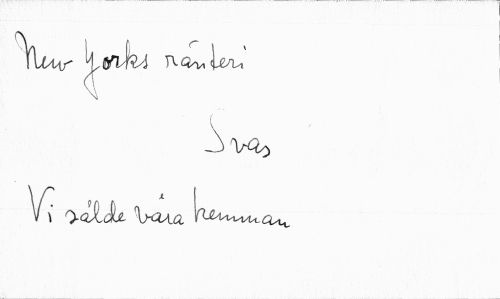 New Yorks ränteri
Svas
Vi sålde våra hemman